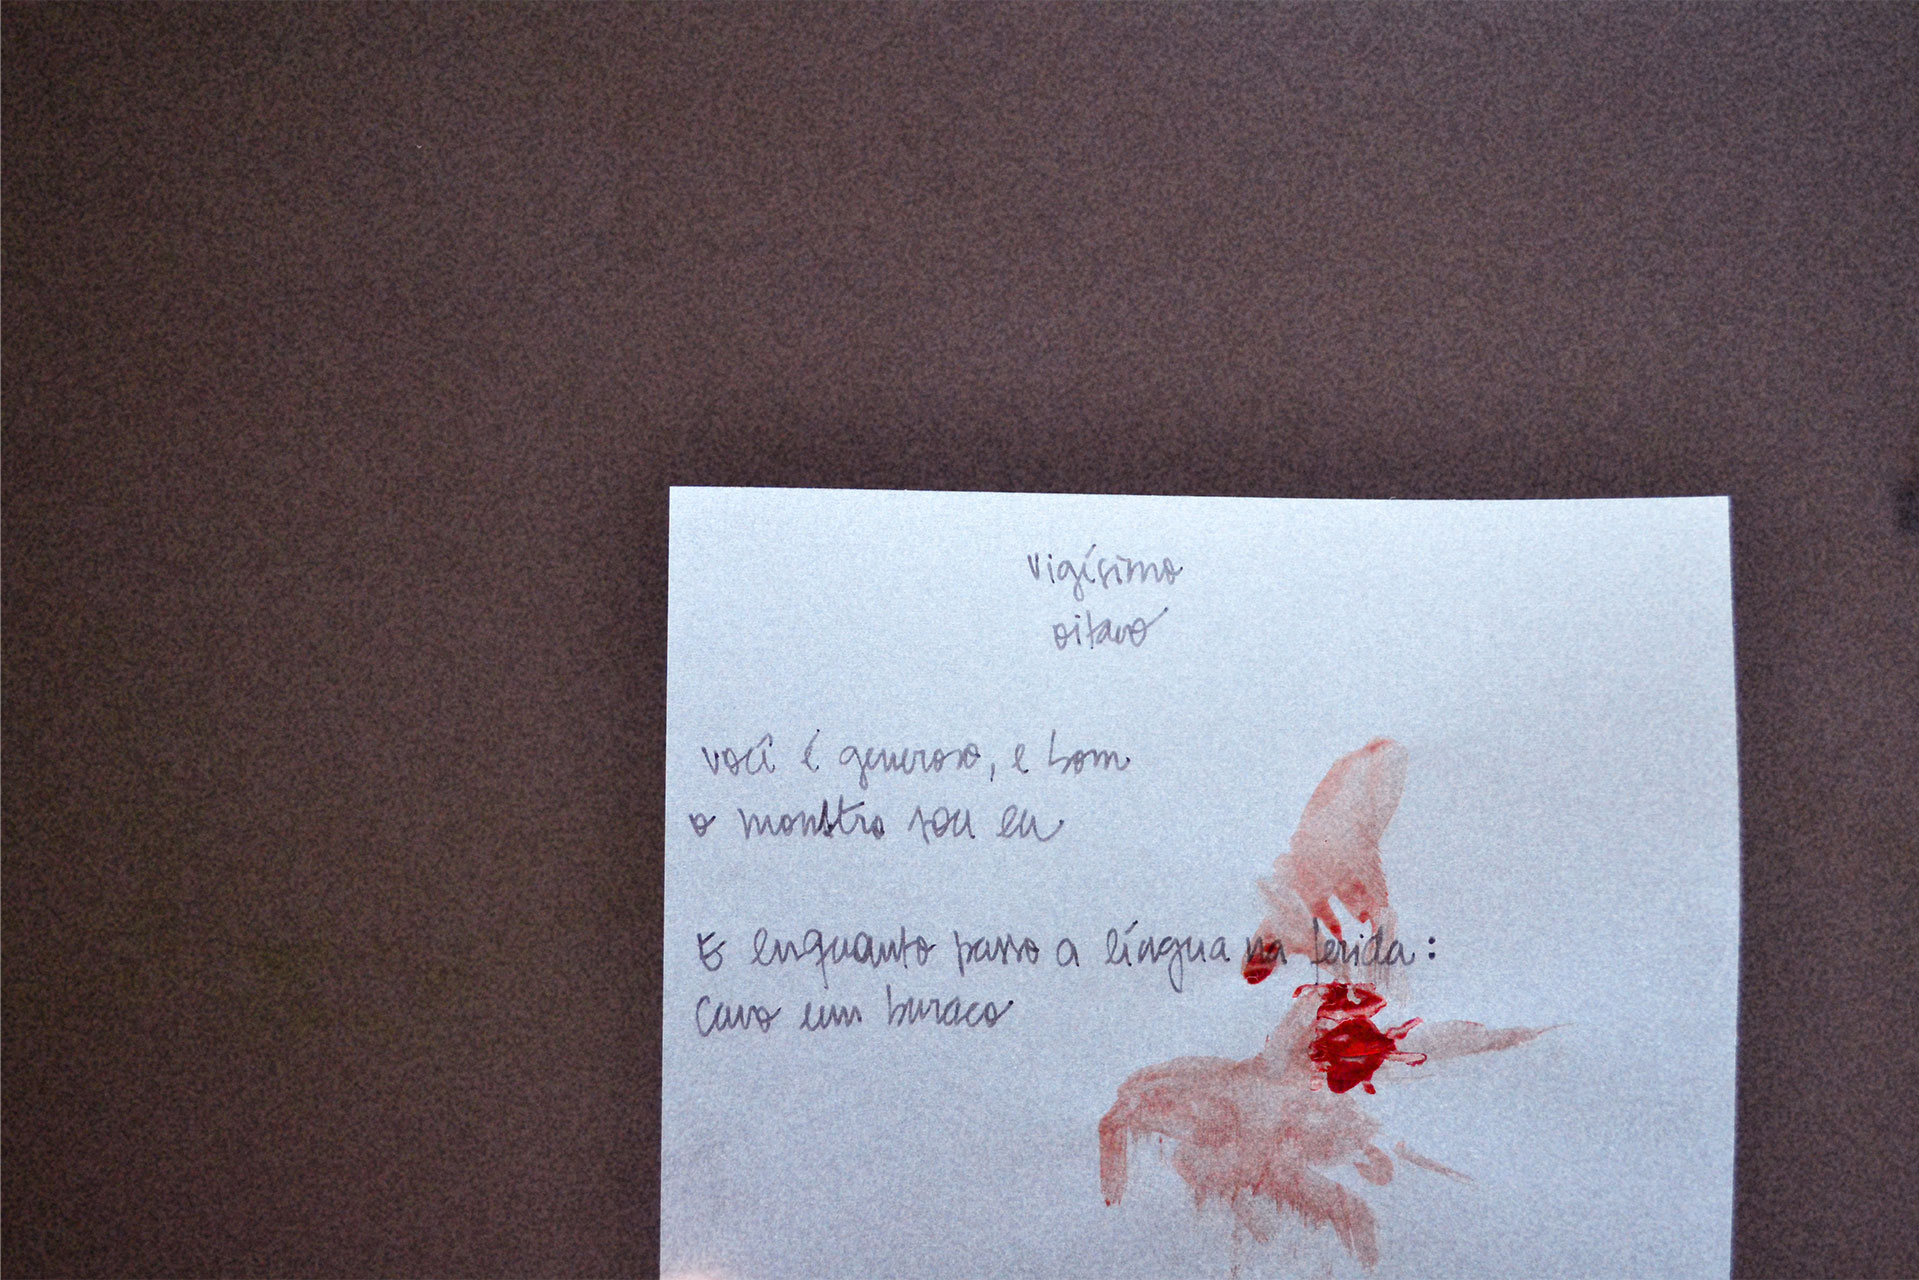 vigísimo
oitavo
você é generoso, e bom
o monstro sou eu
E enquanto passo a língua na ferida:
Cavo um buraco